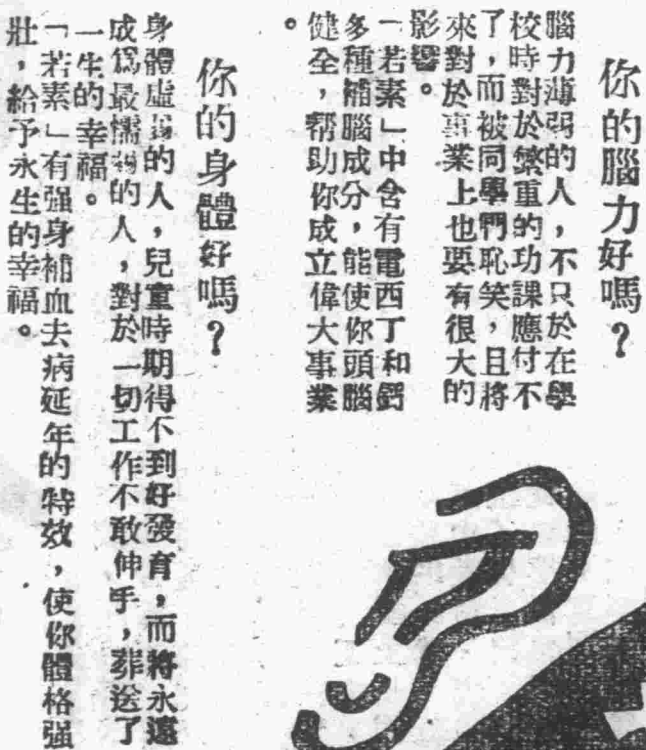 你的腦力好嗎？
腦力薄弱的人，不只於在學
校時對於繁重的功課應付不
了，而被同學們恥笑，且將
來對於事業上也要有很大的
影響。
「若素」中含有電西丁和鈣
多種補腦成分，能使你頭腦
健全，幫助你成立偉大事業
。
你的身體好嗎？
身體虛弱的人，兒童時期得不到好發育，而將永遠
成爲最懦弱的人，對於一切工作不敢伸手，葬送了
一生的幸福。
「若素」有强身補血去病延年的特效，使你體格强
壯，給予永生的幸福。